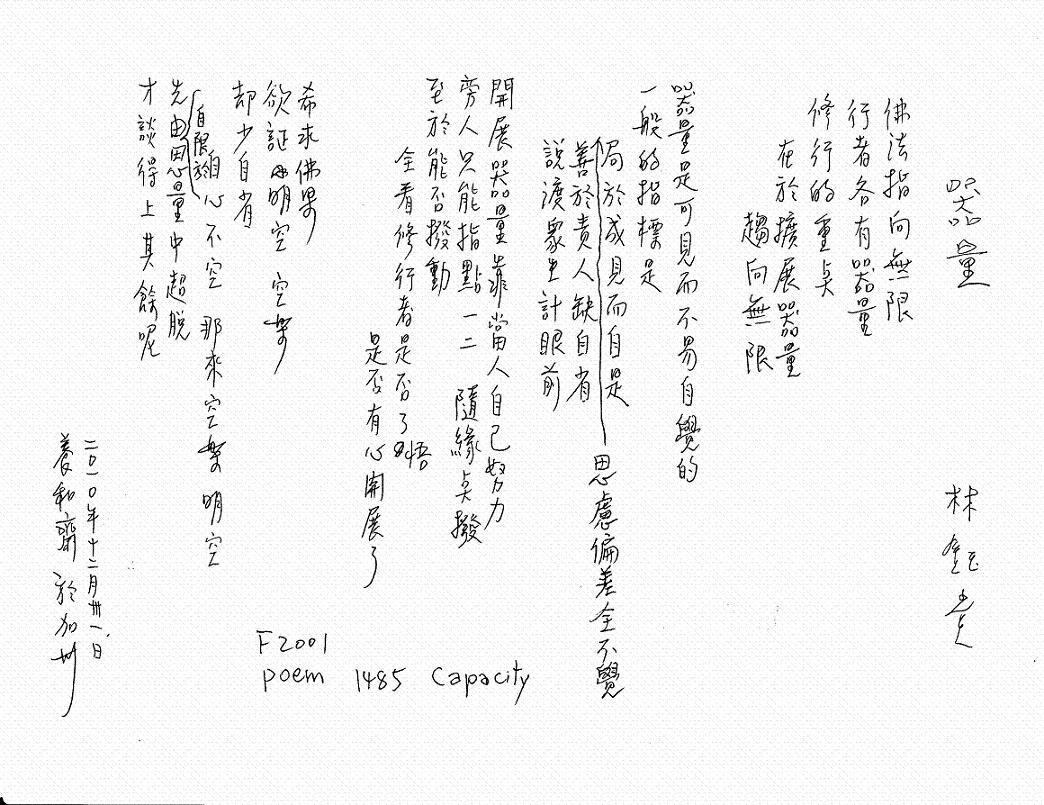 器量 林鈺堂
佛法指向無限
行者各有器量
修行的重点
在於擴展器量
趨向無限
器量是可見而不易自覺的
一般的指標是
局於成見而自是
思慮偏差全不覺
善於責人缺自省
說渡眾生計眼前
開展器量靠當人自己努力
旁人只能指點一二 隨緣点撥
至於能否撥動
全看修行者是否了悟
是否有心開展了
希求佛果
欲証明空 空樂
却少自省
自限於自心不空 那來空樂 明空
先由思量中超脫
才談得上其餘呢
二〇一〇年十二月卅一日
養和齋於加州
F2001
poem 1485 Capacity